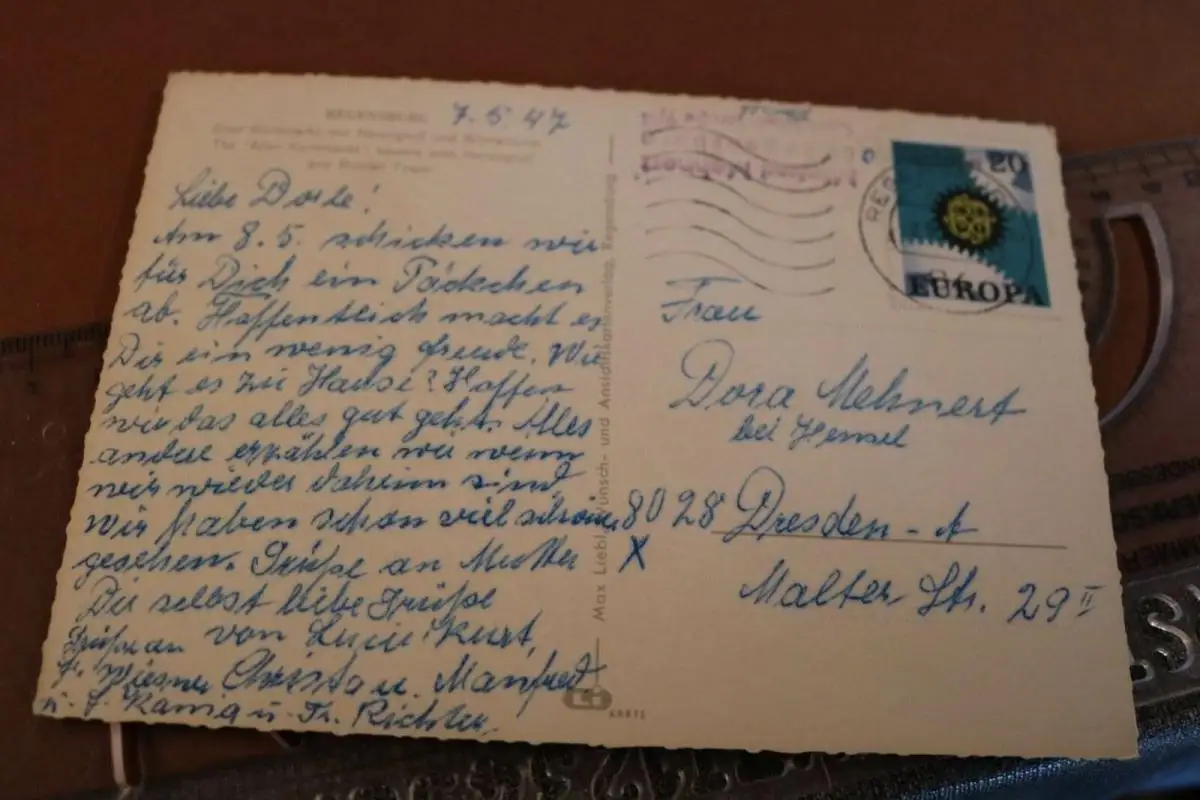 REGENSBURG
7.5.47
Liebe Dorle!
Am 8.5. schicken wir
für Dich ein Päckchen
ab. Hoffentlich macht es
Dir ein wenig Freude. Wie
geht es zu Hause? Hoffen
wir das alles gut geht. Alles
andere erzählen wir wenn
wir wieder daheim sind.
Wir haben schon viel schönes
gesehen. Grüße an Mutter
Dir selbst liebe Grüße
von Luzie, Kurt,
Christa u. Manfred
Grüße an
Fr. Wiesner
u. F. König u. Fr. Richter
Max Liebl, Wunsch- und Ansichtkartenverlag, Regensburg
KARTE
20
EUROPA
Frau
Dora Mehnert
bei Hensel
8028 Dresden-A
X
Malter Str. 29 II